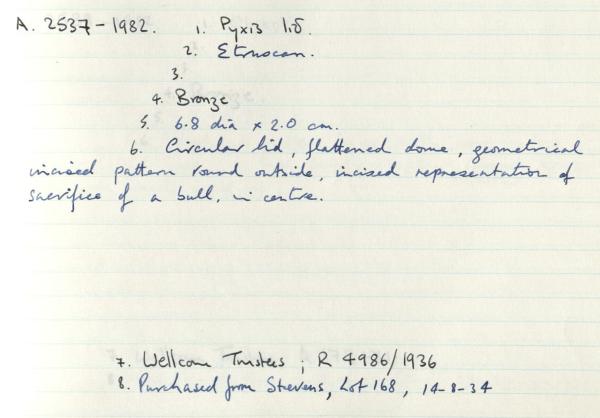 A. 2537-1982. 1. Pyxis lid.
2. Etruscan.
3.
4. Bronze
5. 6.8 dia x 2.0 cm.
6. Circular lid, flattened dome, geometrical
incised pattern round outside, incised representation of
sacrifice of a bull, in centre.
7. Wellcome Trustees; R 4986/1936
8. Purchased from Stevens, Lot 168, 14-8-34